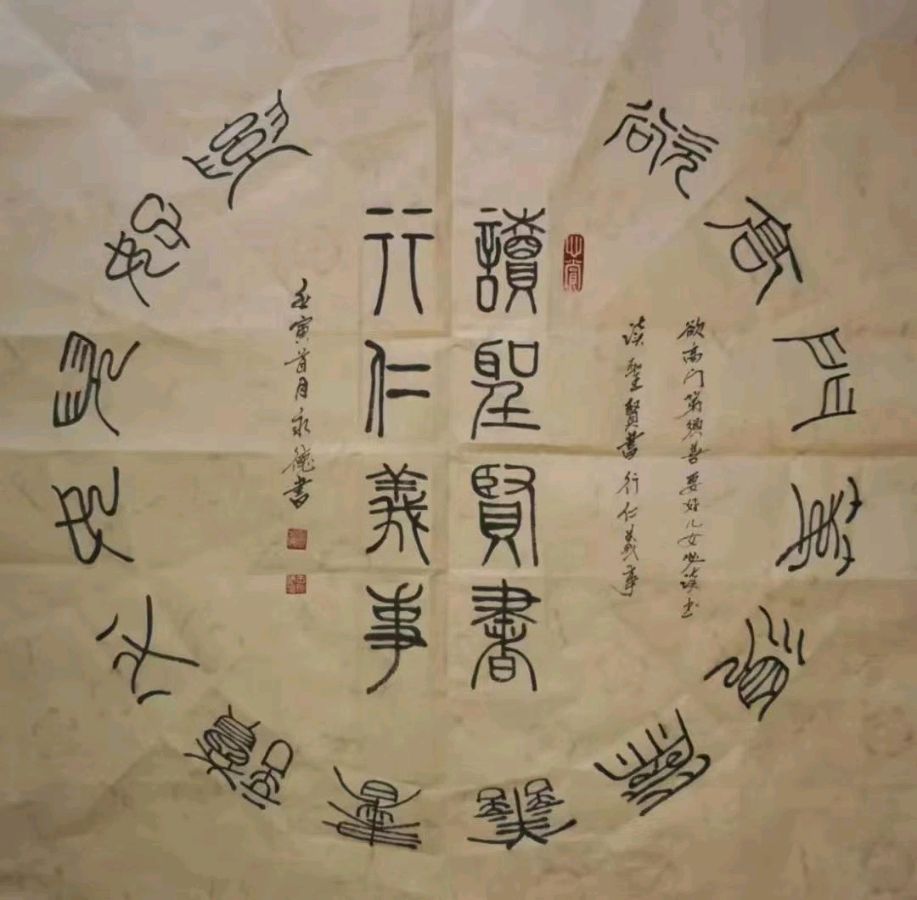 讀聖賢書
行仁義事
欲高門第須為善
要好兒女必讀書
欲高门第興善要好儿女必读书
读聖賢書行仁義事
壬寅首月永德書